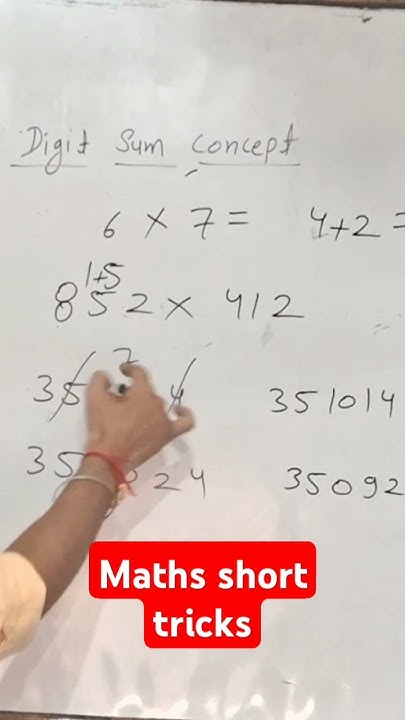 Digit Sum Concept
6 × 7 = 4+2 =
1+5
852 × 412
35 7 4 351014
35 24 35092
Maths short
tricks